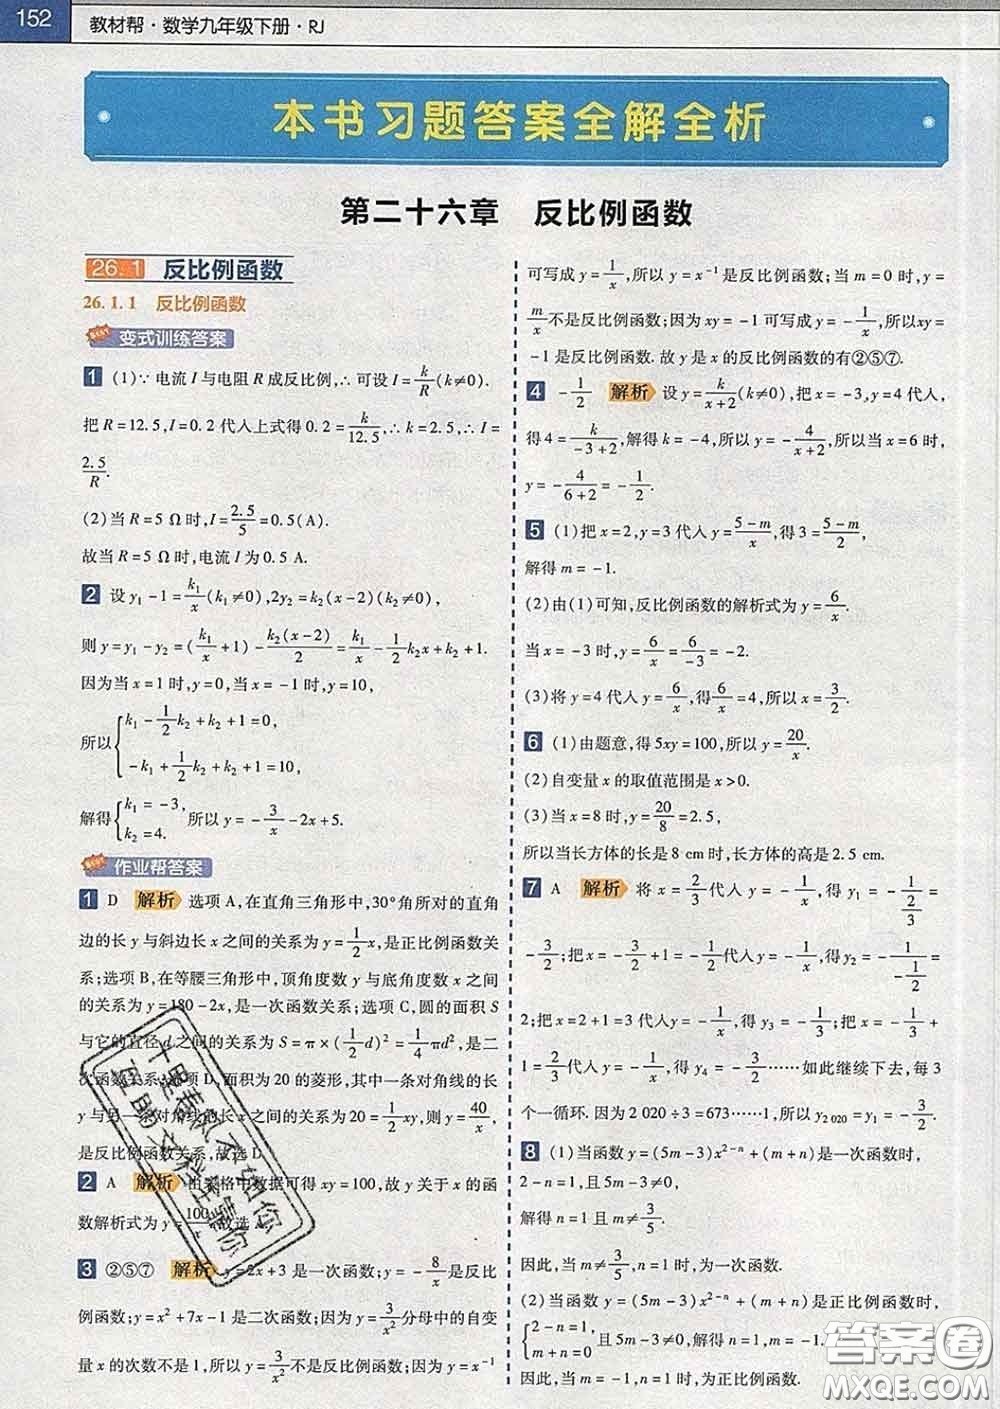 152 教材帮·数学九年级下册·RJ
本书习题答案全解全析
第二十六章 反比例函数
26.1 反比例函数
26.1.1 反比例函数
变式训练答案
1 (1)∵电流I与电阻R成反比例,∴可设I=k/R(k≠0).
把R=12.5,I=0.2代入上式得0.2=k/12.5,∴k=2.5,∴I=
2.5/R.
(2)当R=5 Ω时,I=2.5/5=0.5(A).
故当R=5 Ω时,电流I为0.5 A.
2 设y₁-1=k₁/x(k₁≠0),2y₂=k₂(x-2)(k₂≠0),
则y=y₁-y₂=(k₁/x+1)-k₂(x-2)/2=k₁/x-1/2k₂x+k₂+1.
因为当x=1时,y=0,当x=-1时,y=10,
所以{k₁-1/2k₂+k₂+1=0,
-k₁+1/2k₂+k₂+1=10,
解得{k₁=-3, k₂=4. 所以y=-3/x-2x+5.
作业帮答案
1 D 解析 选项A,在直角三角形中,30°角所对的直角
边的长y与斜边长x之间的关系为y=1/2x,是正比例函数关
系;选项B,在等腰三角形中,顶角度数y与底角度数x之间
的关系为y=180-2x,是一次函数关系;选项C,圆的面积S
与它的直径d之间的关系为S=π×(1/2d)²=1/4πd²,是二
次函数关系;选项D,面积为20的菱形,其中一条对角线的长
y与另一对角线的长x之间的关系为20=1/2xy,则y=40/x,
是反比例函数关系,故选D.
2 A 解析 由表格中数据可得xy=100,故y关于x的函
数解析式为y=100/x.故选A.
3 ②⑤⑦ 解析 y=2x+3是一次函数;y=-8/x是反比
例函数;y=x²+7x-1是二次函数;因为y=3/x²分母中的自变
量x的次数不是1,所以y=3/x²不是反比例函数;因为y=x⁻¹
可写成y=1/x,所以y=x⁻¹是反比例函数;当m=0时,y=
m/x不是反比例函数;因为xy=-1可写成y=-1/x,所以xy=
-1是反比例函数.故y是x的反比例函数的有②⑤⑦.
4 -1/2 解析 设y=k/(x+2)(k≠0),把x=-3,y=4代入,
得4=k/(-3+2),解得k=-4,所以y=-4/(x+2),所以当x=6时,
y=-4/(6+2)=-1/2.
5 (1)把x=2,y=3代入y=(5-m)/x,得3=(5-m)/2,
解得m=-1.
(2)由(1)可知,反比例函数的解析式为y=6/x.
当x=-3时,y=6/x=6/-3=-2.
(3)将y=4代入y=6/x,得6/x=4,所以x=3/2.
6 (1)由题意,得5xy=100,所以y=20/x.
(2)自变量x的取值范围是x>0.
(3)当x=8时,y=20/8=2.5,
所以当长方体的长是8 cm时,长方体的高是2.5 cm.
7 A 解析 将x=2/3代入y=-1/x,得y₁=-1/(2/3)=
-3/2;把x=-3/2+1=-1/2代入y=-1/x,得y₂=-1/(-1/2)=
2;把x=2+1=3代入y=-1/x,得y₃=-1/3;把x=-1/3+
1=2/3代入y=-1/x,得y₄=-3/2……如此继续下去,每3
个一循环.因为2 020÷3=673……1,所以y₂₀₂₀=y₁=-3/2.
8 (1)当函数y=(5m-3)x²⁻ⁿ+(m+n)是一次函数时,
2-n=1,且5m-3≠0,
解得n=1且m≠3/5.
因此,当m≠3/5,n=1时,为一次函数.
(2)当函数y=(5m-3)x²⁻ⁿ+(m+n)是正比例函数时,
{2-n=1, m+n=0 且5m-3≠0,解得n=1,m=-1.
因此,当m=-1,n=1时,为正比例函数.
答案圈
MXQE.COM